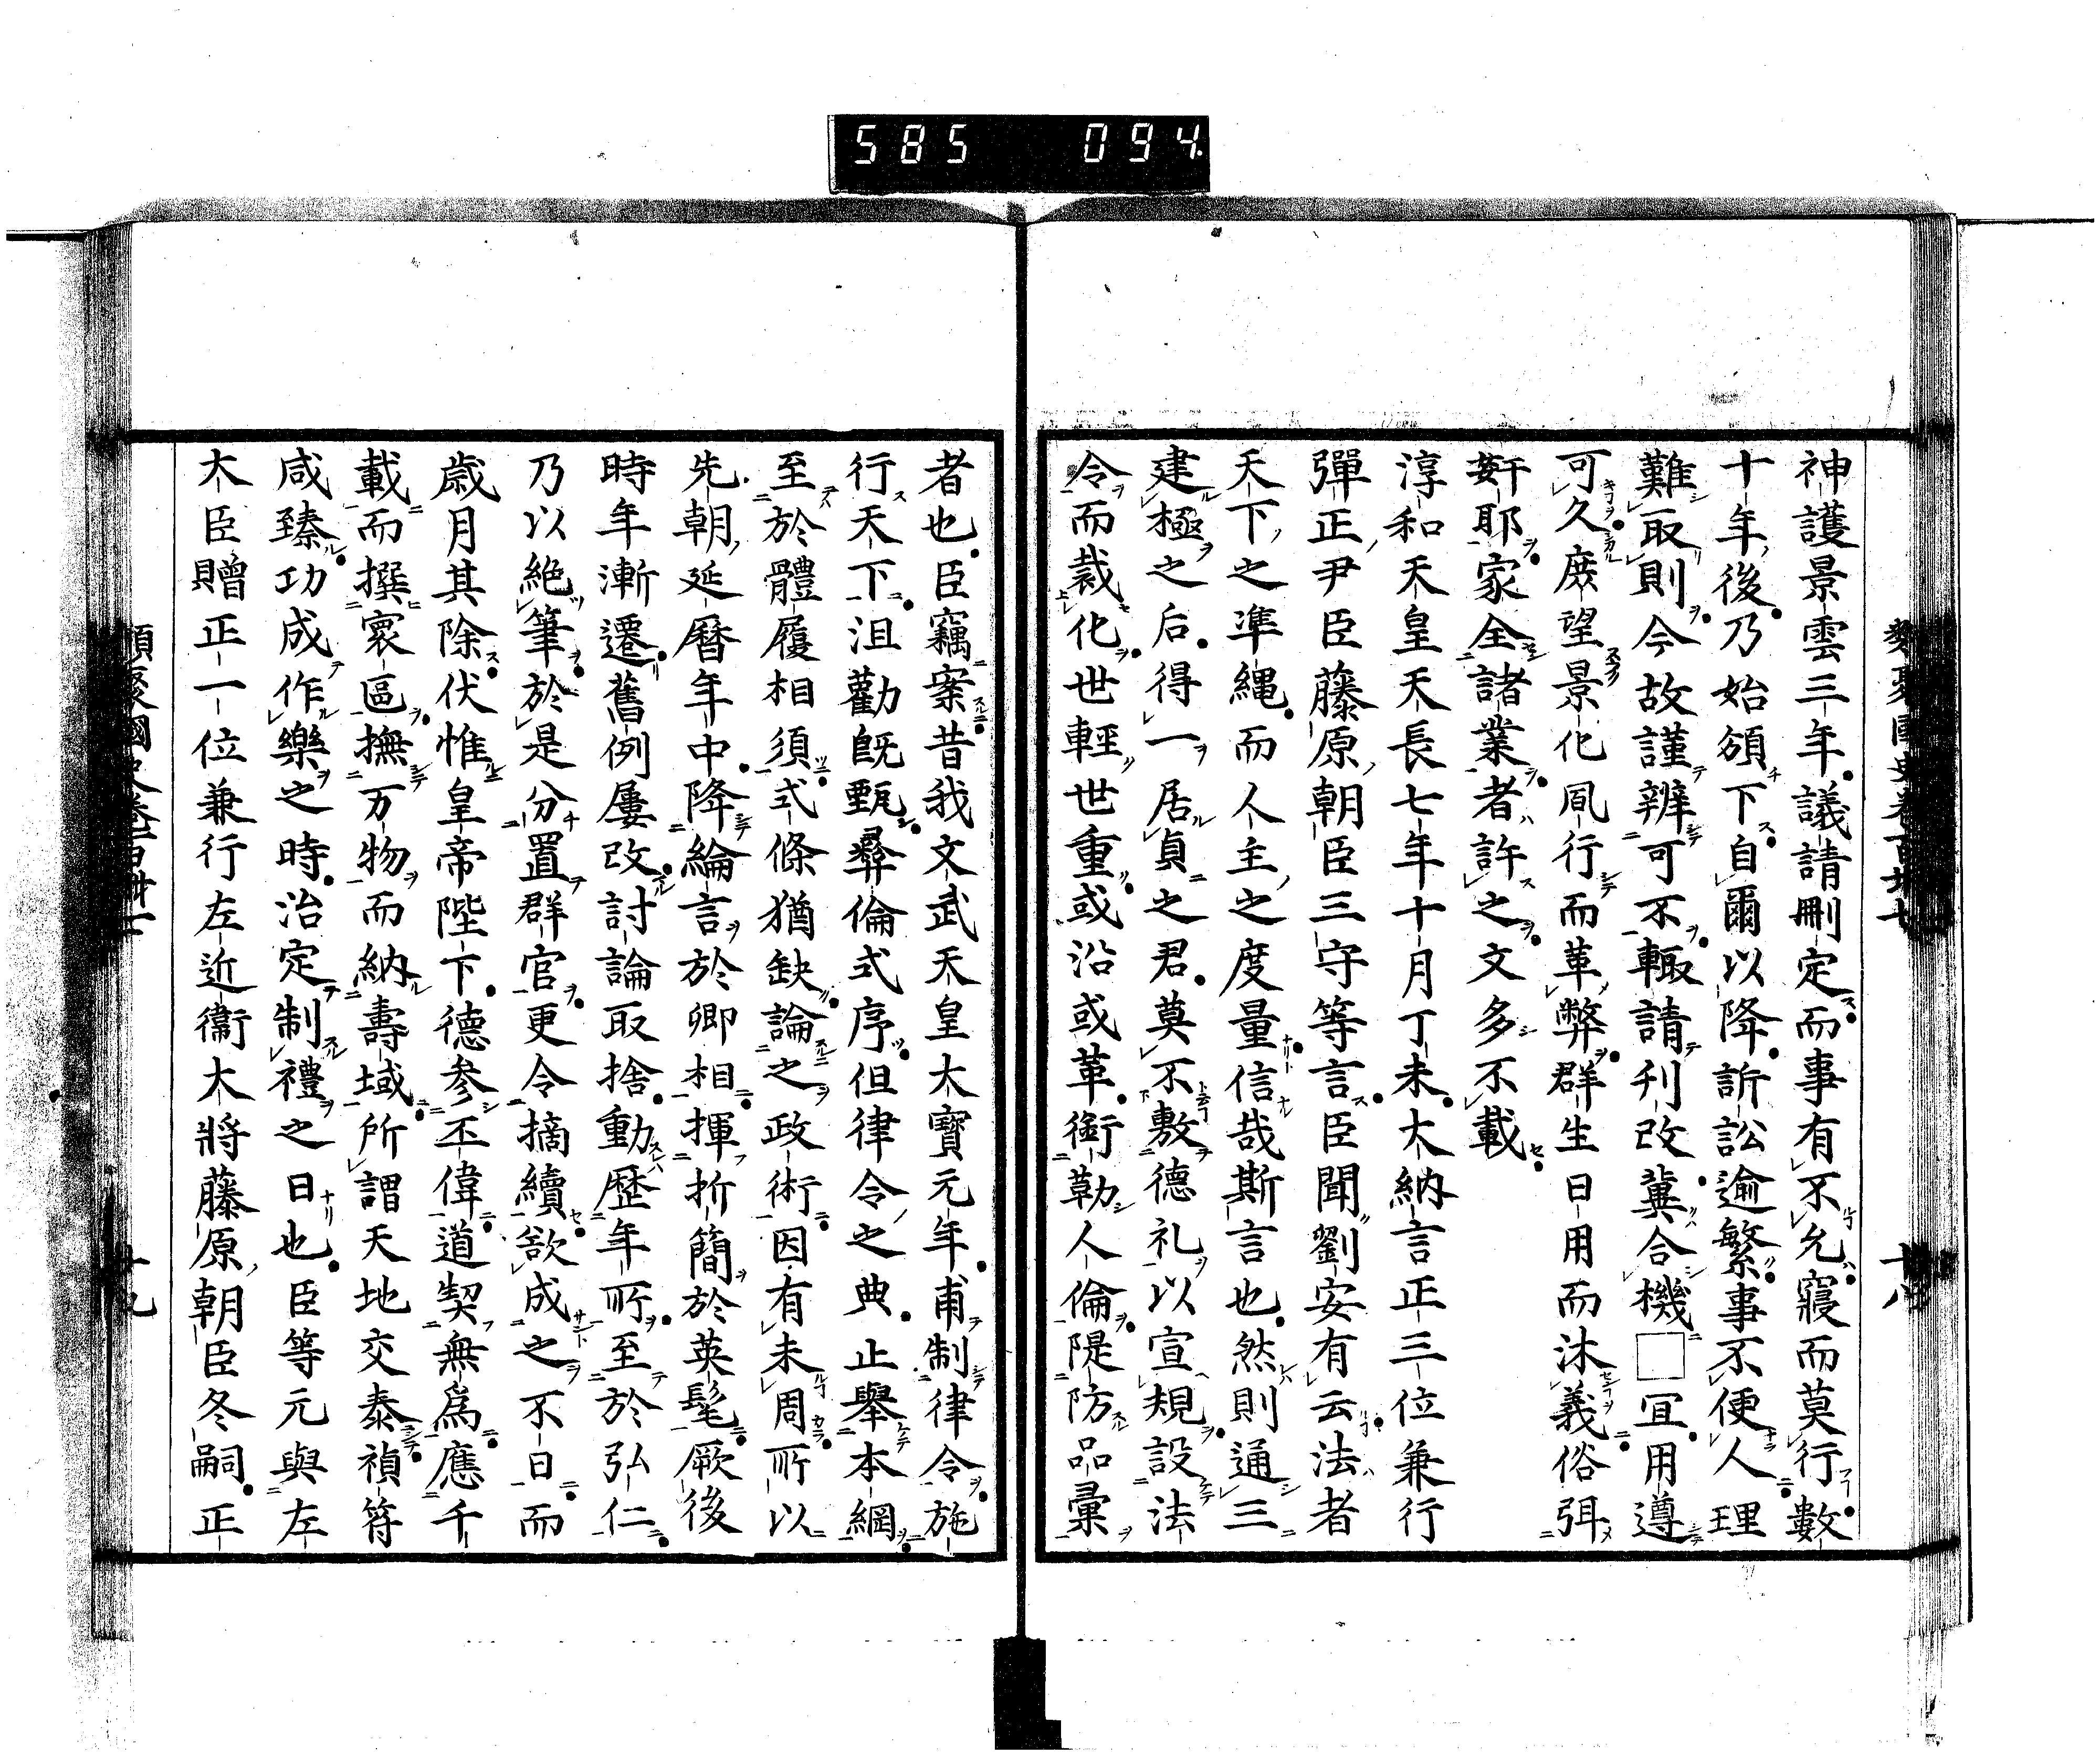 585 094
神護景雲三年議請刪定而事有不允寢而莫行數
十年後乃始頒下自爾以降訴訟逾繁事不便人理
難取則今故謹辨可不輙請刊改冀合機□冝用遵
可久庶望景化凮行而革弊群生日用而沐義俗弭
姧耶家全諸業者許之文多不載
淳和天皇天長七年十月丁未大納言正三位兼行
彈正尹臣藤原朝臣三守等言臣聞劉安有云法者
天下之凖繩而人主之度量信哉斯言也然則通三
建極之后得一居貞之君莫不敷德礼以宣規設法
令而裁化世輕世重或沿或革銜勒人倫隄防品彙
者也臣竊案昔我文武天皇大寶元年甫制律令施
行天下沮勸旣甄彛倫式序但律令之典止舉本綱
至於體履相須式條猶缺論之政術因有未周所以
先朝延曆年中降綸言於卿相揮折簡於英髦厥後
時年漸遷舊例屢改討論取捨動歷年所至於弘仁
乃以絕筆於是分置群官更令摘續欲成之不日而
歲月其除伏惟皇帝陛下德参丕偉道契無爲應千
載而撰寰區撫万物而納壽域所謂天地交泰禎符
咸臻功成作樂之時治定制禮之日也臣等元與左
大臣贈正一位兼行左近衞大將藤原朝臣冬嗣正
類聚國史卷百卌七
十九